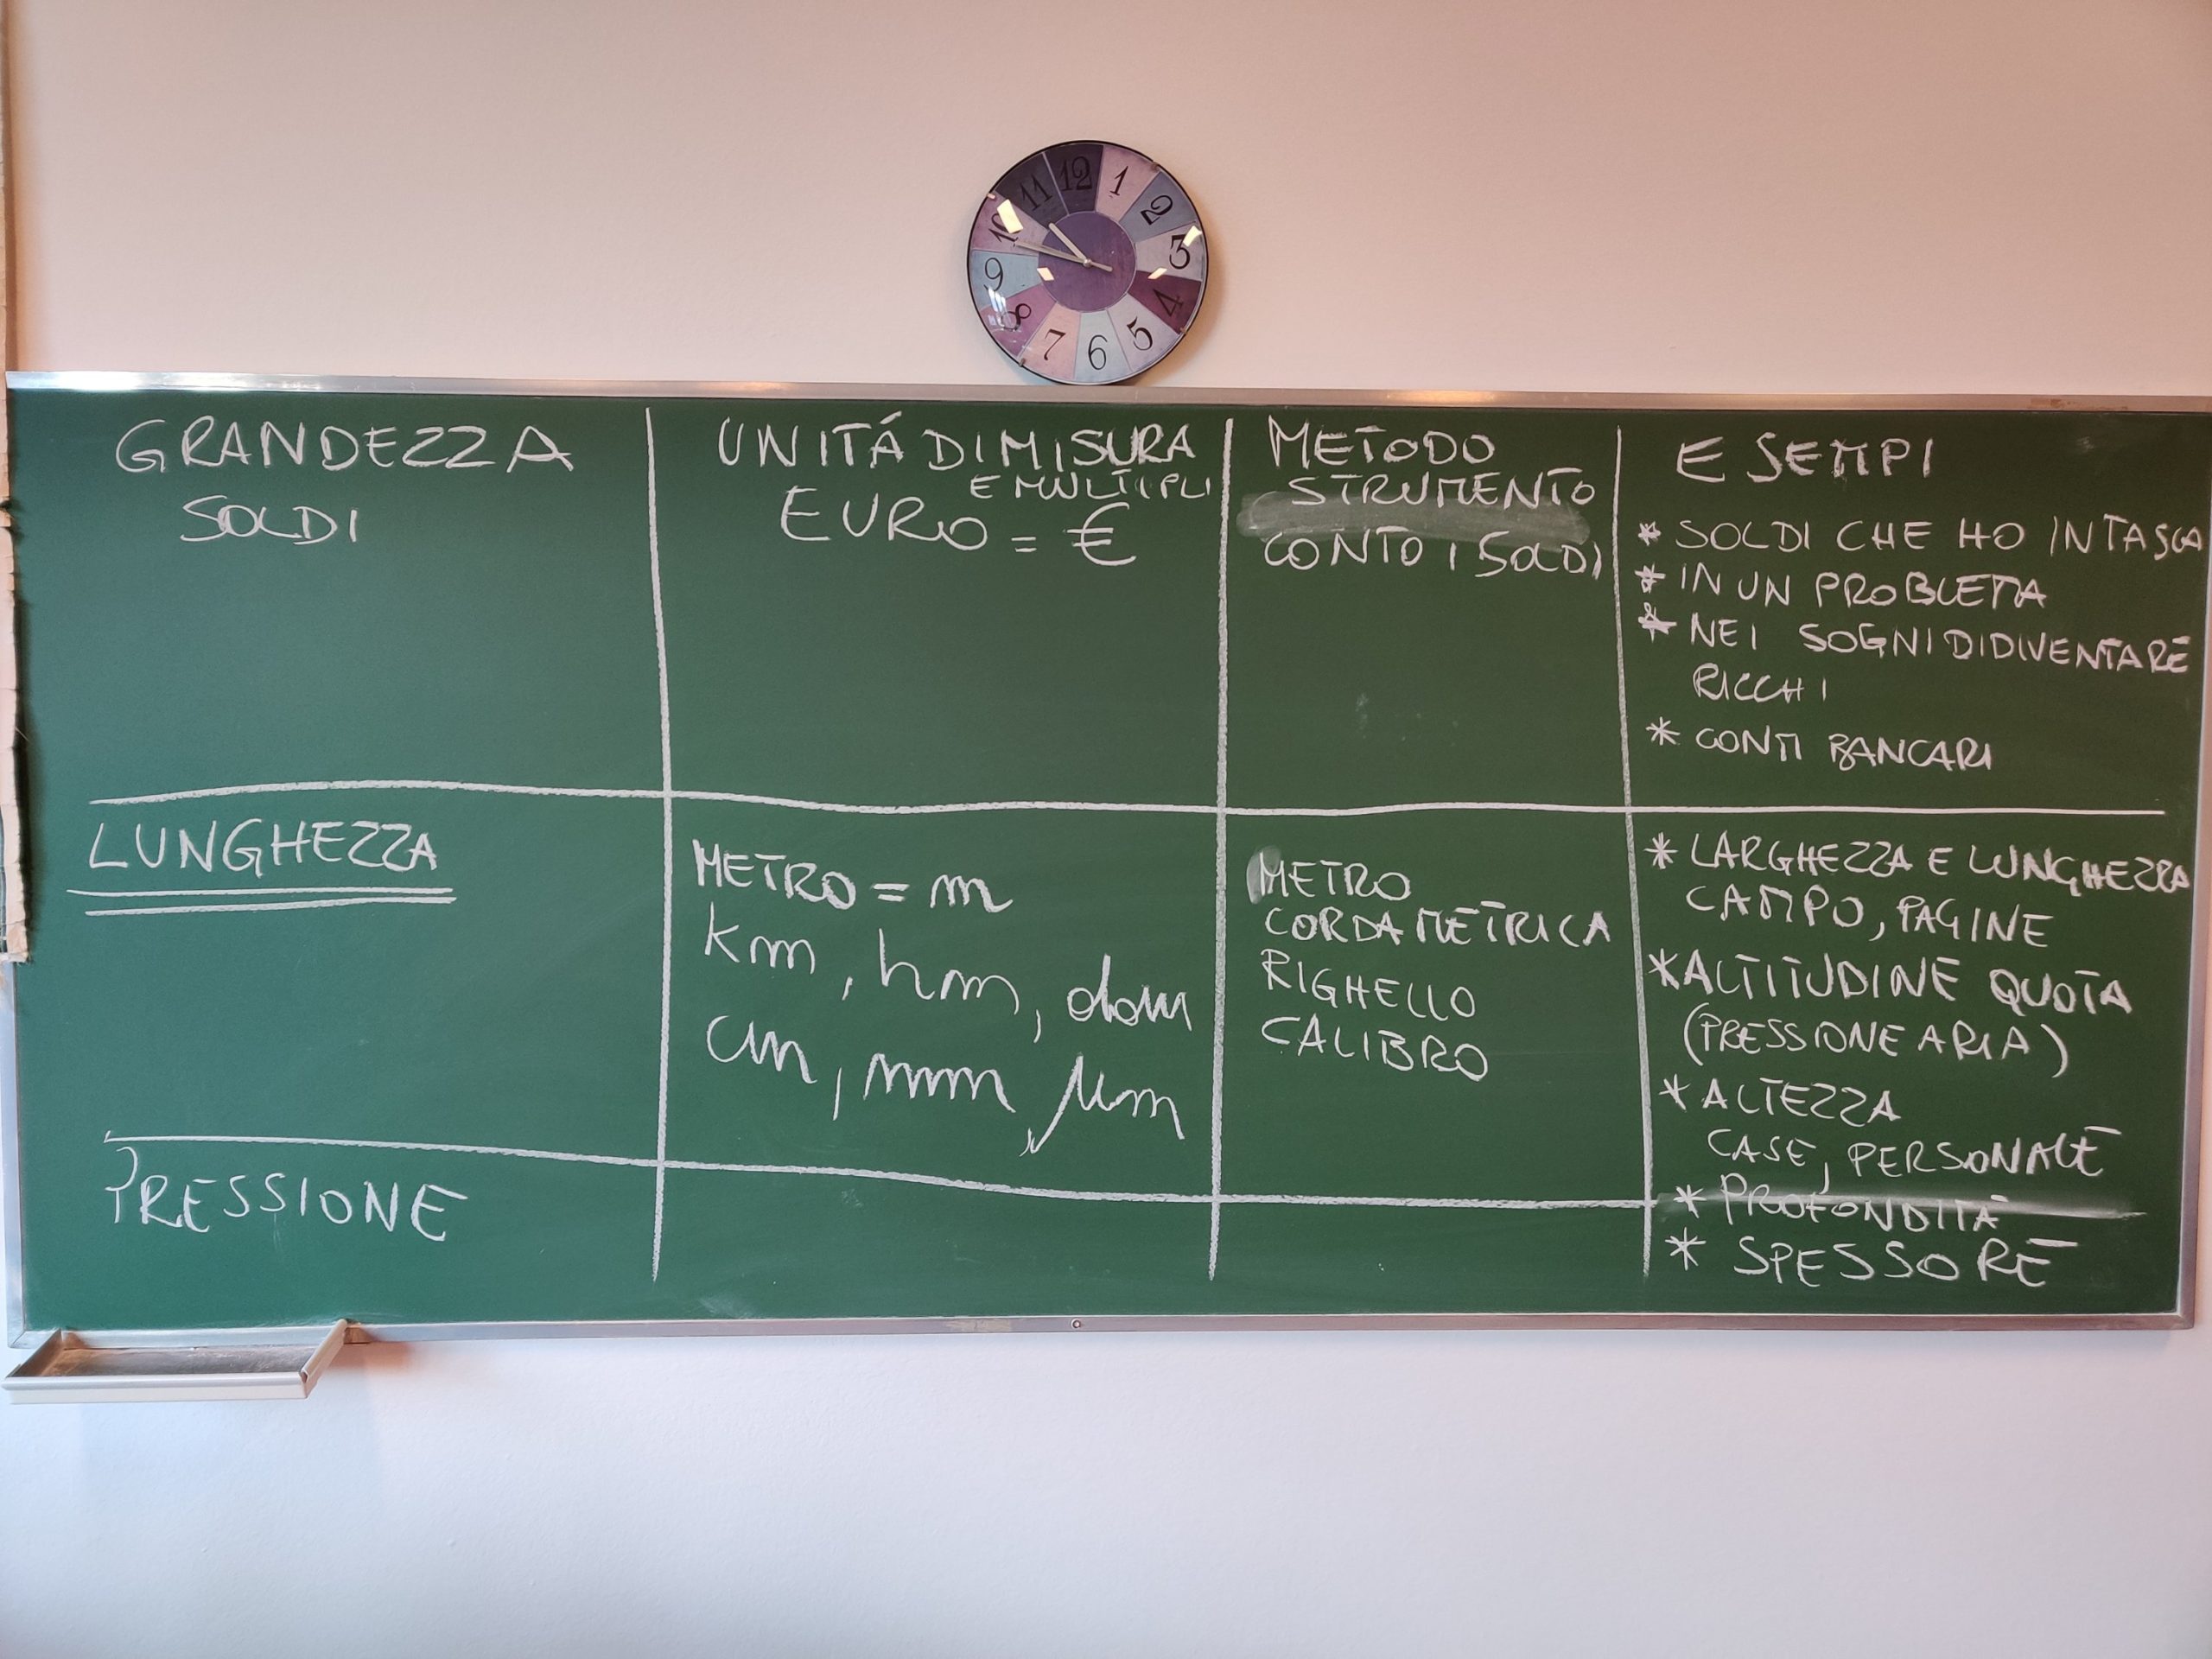 12
1
2
3
4
5
6
7
8
9
10
11
GRANDEZZA
SOLDI
UNITÁ DI MISURA
E MULTIPLI
EURO = €
METODO
STRUMENTO
CONTO I SOLDI
ESEMPI
* SOLDI CHE HO IN TASCA
* IN UN PROBLEMA
* NEI SOGNI DI DIVENTARE
RICCHI
* CONTI BANCARI
LUNGHEZZA
METRO = m
km, hm, dam
cm, mm, μm
METRO
CORDA METRICA
RIGHELLO
CALIBRO
* LARGHEZZA E LUNGHEZZA
CAMPO, PAGINE
* ALTITUDINE QUOTA
(PRESSIONE ARIA)
* ALTEZZA
CASE, PERSONALE
* PROFONDITÀ
* SPESSORE
PRESSIONE